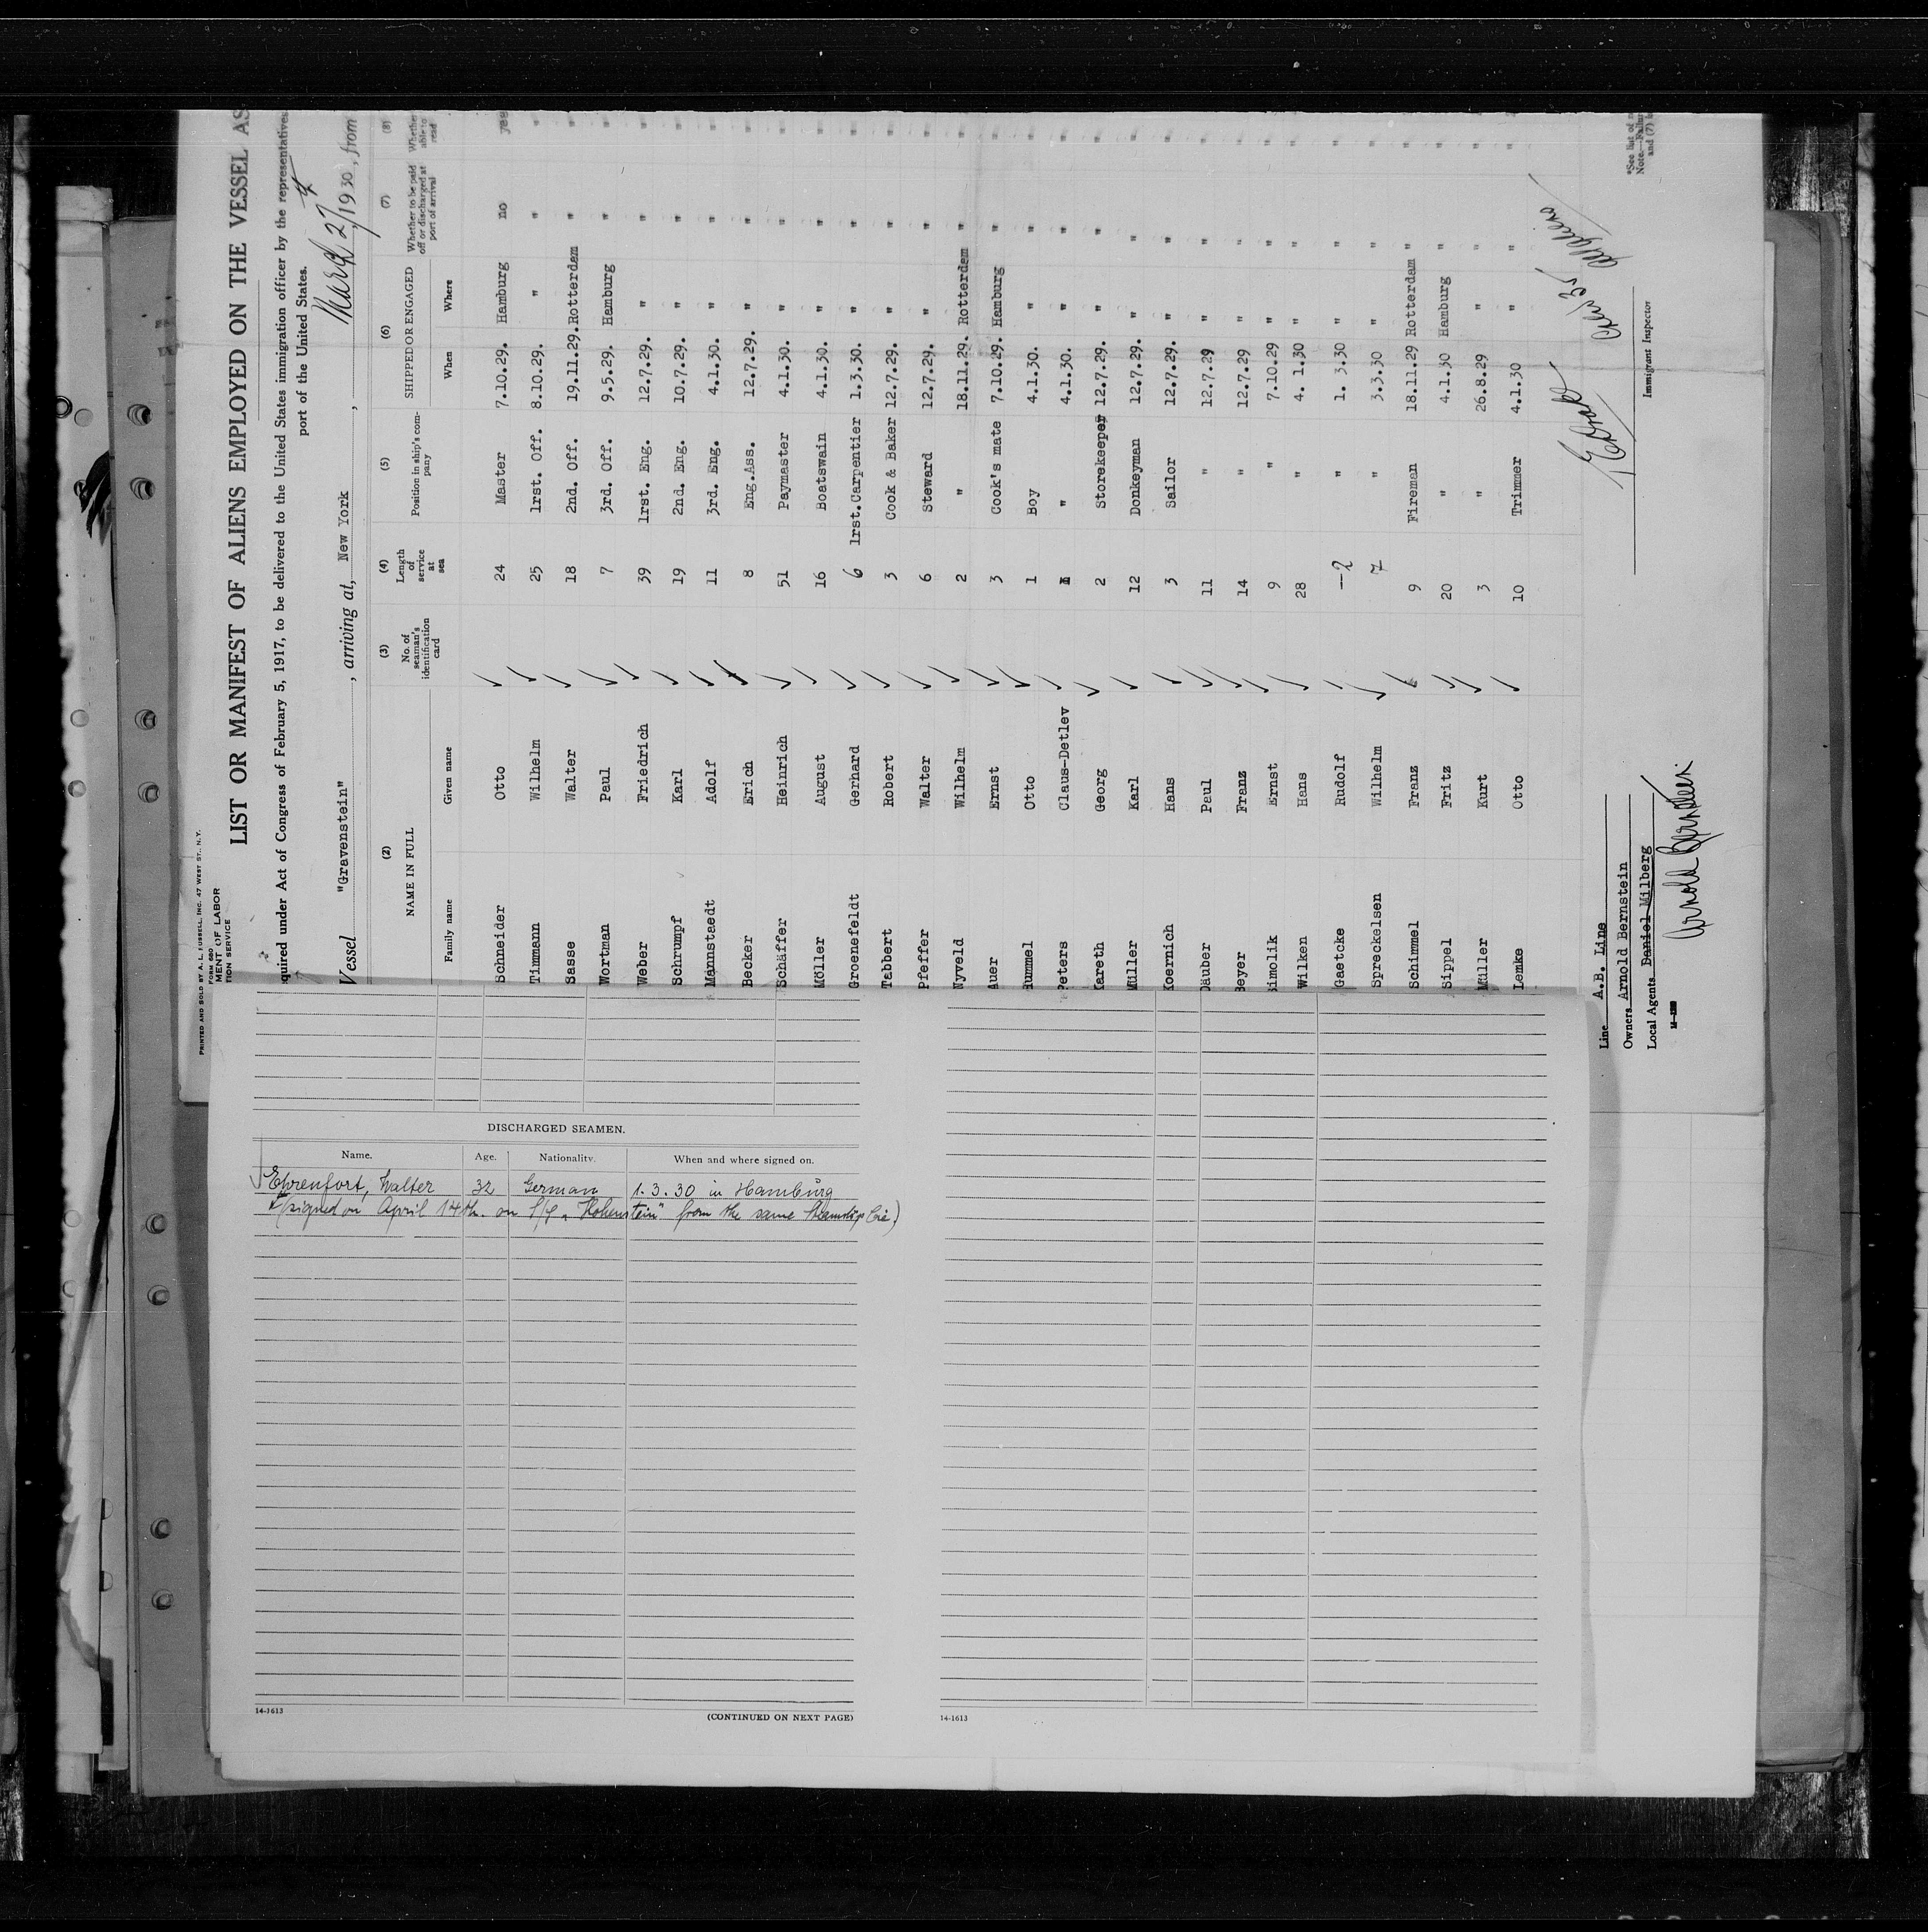 PRINTED AND SOLD BY A. L. FUSSELL, INC. 47 WEST ST., N.Y.
FORM 680
MENT OF LABOR
TION SERVICE
LIST OR MANIFEST OF ALIENS EMPLOYED ON THE VESSEL AS
quired under Act of Congress of February 5, 1917, to be delivered to the United States immigration officer by the representatives
port of the United States.
Vessel "Gravenstein", arriving at, New York, March 27, 1930, from
(2) (3) (4) (5) (6) (7) (8)
NAME IN FULL No. of seaman's identification card Length of service at sea Position in ship's company SHIPPED OR ENGAGED Whether to be paid off or discharged at port of arrival Whether able to read
Family name Given name When Where
Schneider Otto 24 Master 7.10.29. Hamburg no yes
Timmann Wilhelm 25 1rst. Off. 8.10.29. " " "
Sasse Walter 18 2nd. Off. 19.11.29. Rotterdam " "
Wortman Paul 7 3rd. Off. 9.5.29. Hamburg " "
Weber Friedrich 39 1rst. Eng. 12.7.29. " " "
Schrumpf Karl 19 2nd. Eng. 10.7.29. " " "
Mannstaedt Adolf 11 3rd. Eng. 4.1.30. " " "
Becker Erich 8 Eng.Ass. 12.7.29. " " "
Schäffer Heinrich 51 Paymaster 4.1.30. " " "
Möller August 16 Boatswain 4.1.30. " " "
Groenefeldt Gerhard 6 1rst.Carpentier 1.3.30. " " "
Tabbert Robert 3 Cook & Baker 12.7.29. " " "
Pfeffer Walter 6 Steward 12.7.29. " " "
Wyveld Wilhelm 2 " 18.11.29. Rotterdam " "
Auer Ernst 3 Cook's mate 7.10.29. Hamburg " "
Hummel Otto 1 Boy 4.1.30. " " "
Peters Claus-Detlev 1 " 4.1.30. " " "
Kareth Georg 2 Storekeeper 12.7.29. " " "
Müller Karl 12 Donkeyman 12.7.29. " " "
Koernich Hans 3 Sailor 12.7.29. " " "
Däuber Paul 11 " 12.7.29 " " "
Beyer Franz 14 " 12.7.29 " " "
Simolik Ernst 9 " 7.10.29 " " "
Wilken Hans 28 " 4. 1.30 " " "
Gaetcke Rudolf 2 " 1. 3.30 " " "
Spreckelsen Wilhelm 7 " 3.3.30 " " "
Schimmel Franz 9 Fireman 18.11.29 Rotterdam " "
Sippel Fritz 20 " 4.1.30 Hamburg " "
Müller Kurt 3 " 26.8.29 " " "
Lemke Otto 10 Trimmer 4.1.30 " " "
Line A.B. Line
Owners Arnold Bernstein
Local Agents Daniel Milberg
Arnold Bernstein.
Immigrant Inspector
*See list of
Note.—
and (7)
DISCHARGED SEAMEN.
Name. Age. Nationality. When and where signed on.
Ehrenfort, Walter 32 German 1.3.30 in Hamburg
(signed on April 14th. on S/S „Hohenstein" from the same Steamship Cie.)
14-1613
(CONTINUED ON NEXT PAGE)
14-1613